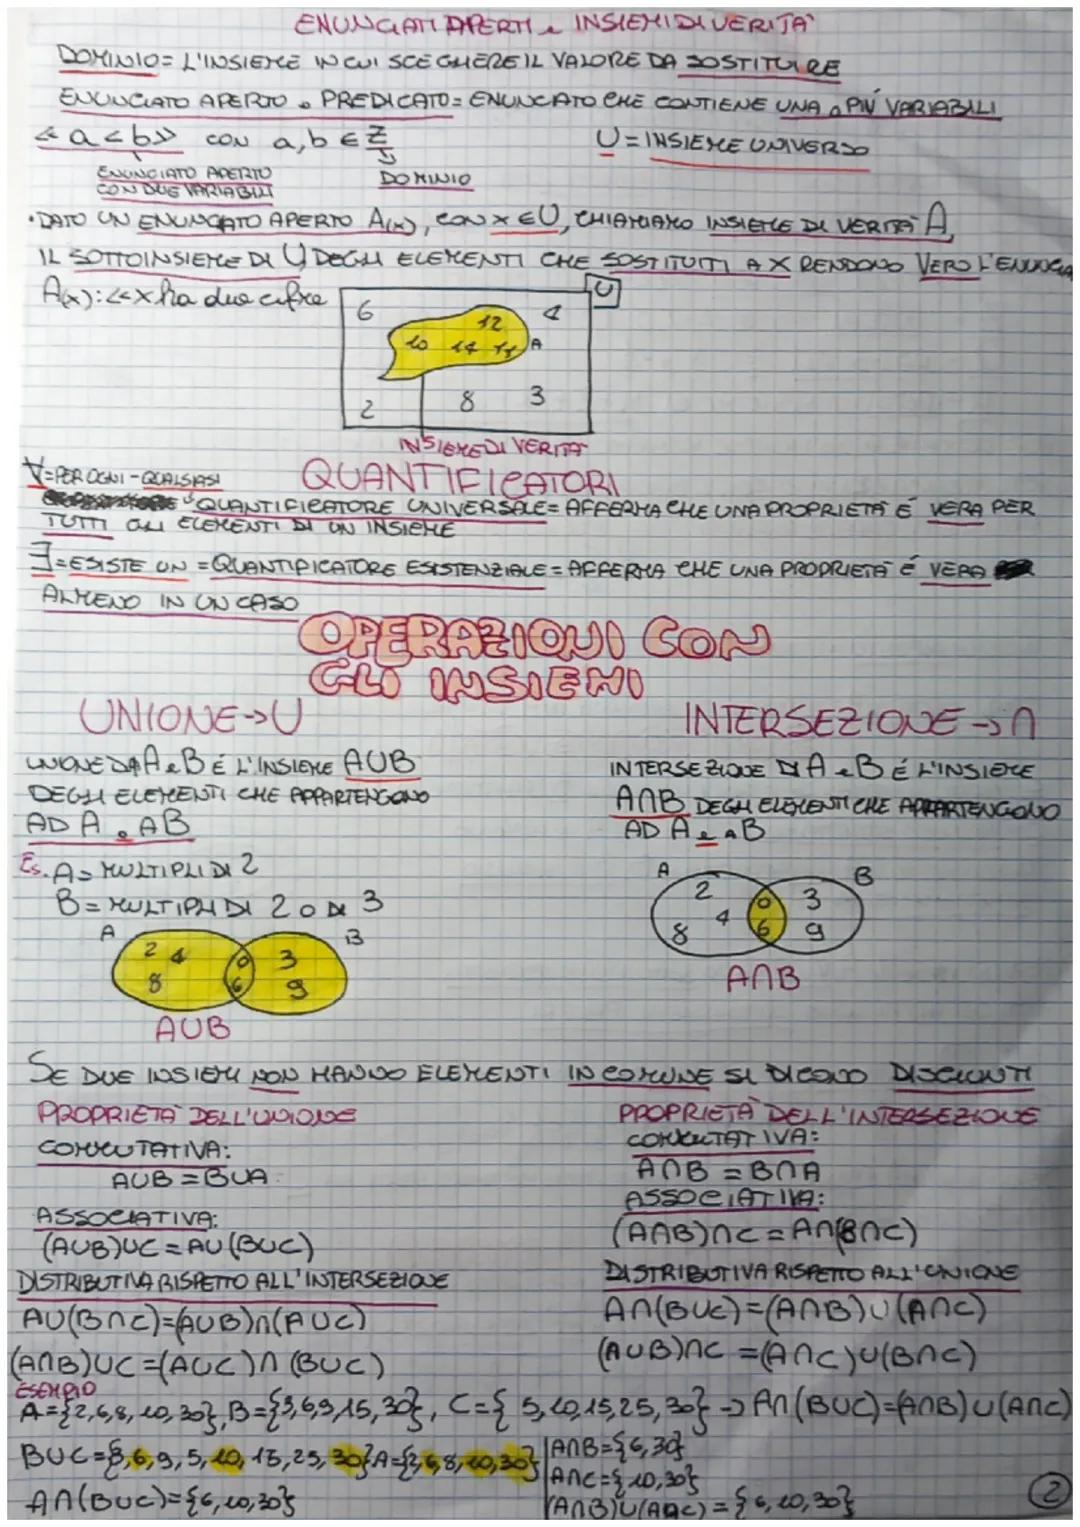 ENUNCIATI APERTI e INSIEMI DI VERITA'
DOMINIO = L'INSIEME IN CUI SCEGLIERE IL VALORE DA SOSTITUIRE
ENUNCIATO APERTO o PREDICATO = ENUNCIATO CHE CONTIENE UNA o PIÙ VARIABILI
<< a < b >> CON a, b ∈ Z U = INSIEME UNIVERSO
ENUNCIATO APERTO CON DUE VARIABILI
DOMINIO
• DATO UN ENUNCIATO APERTO A(x), CON X ∈ U, CHIAMIAMO INSIEME DI VERITÀ A,
IL SOTTOINSIEME DI U DEGLI ELEMENTI CHE SOSTITUITI A X RENDONO VERO L'ENUNCIA
A(x): << x ha due cifre
U
6 4
12
10 14 11 A
2 8 3
INSIEME DI VERITÀ
∀ = PER OGNI - QUALSIASI
QUANTIFICATORI
QUANTIFICATORE UNIVERSALE = AFFERMA CHE UNA PROPRIETÀ É VERA PER
TUTTI GLI ELEMENTI DI UN INSIEME
∃ = ESISTE UN = QUANTIFICATORE ESISTENZIALE = AFFERMA CHE UNA PROPRIETÀ É VERA
ALMENO IN UN CASO
OPERAZIONI CON
GLI INSIEMI
UNIONE → U
UNIONE DA A e B É L'INSIEME A∪B
DEGLI ELEMENTI CHE APPARTENGONO
AD A o A B
Es. A = MULTIPLI DI 2
B = MULTIPLI DI 2 O DI 3
A B
2 4 0 3
8 6 9
A∪B
INTERSEZIONE → ∩
INTERSEZIONE DI A e B É L'INSIEME
A∩B DEGLI ELEMENTI CHE APPARTENGONO
AD A e A B
A B
2 0 3
8 4 6 9
A∩B
SE DUE INSIEMI NON HANNO ELEMENTI IN COMUNE SI DICONO DISGIUNTI
PROPRIETÀ DELL'UNIONE
COMMUTATIVA:
A∪B = B∪A
ASSOCIATIVA:
(A∪B)∪C = A∪(B∪C)
DISTRIBUTIVA RISPETTO ALL'INTERSEZIONE
A∪(B∩C)=(A∪B)∩(A∪C)
(A∩B)∪C =(A∪C)∩(B∪C)
PROPRIETÀ DELL'INTERSEZIONE
COMMUTATIVA:
A∩B = B∩A
ASSOCIATIVA:
(A∩B)∩C = A∩(B∩C)
DISTRIBUTIVA RISPETTO ALL'UNIONE
A∩(B∪C)=(A∩B)∪(A∩C)
(A∪B)∩C =(A∩C)∪(B∩C)
ESEMPIO
A={2,6,8,10,30}, B={3,6,9,15,30}, C={5,10,15,25,30} → A∩(B∪C)=(A∩B)∪(A∩C)
B∪C={3,6,9,5,10,15,25,30} A={2,6,8,10,30}
A∩(B∪C)={6,10,30}
A∩B={6,30}
A∩C={10,30}
(A∩B)∪(A∩C)={6,10,30}
2